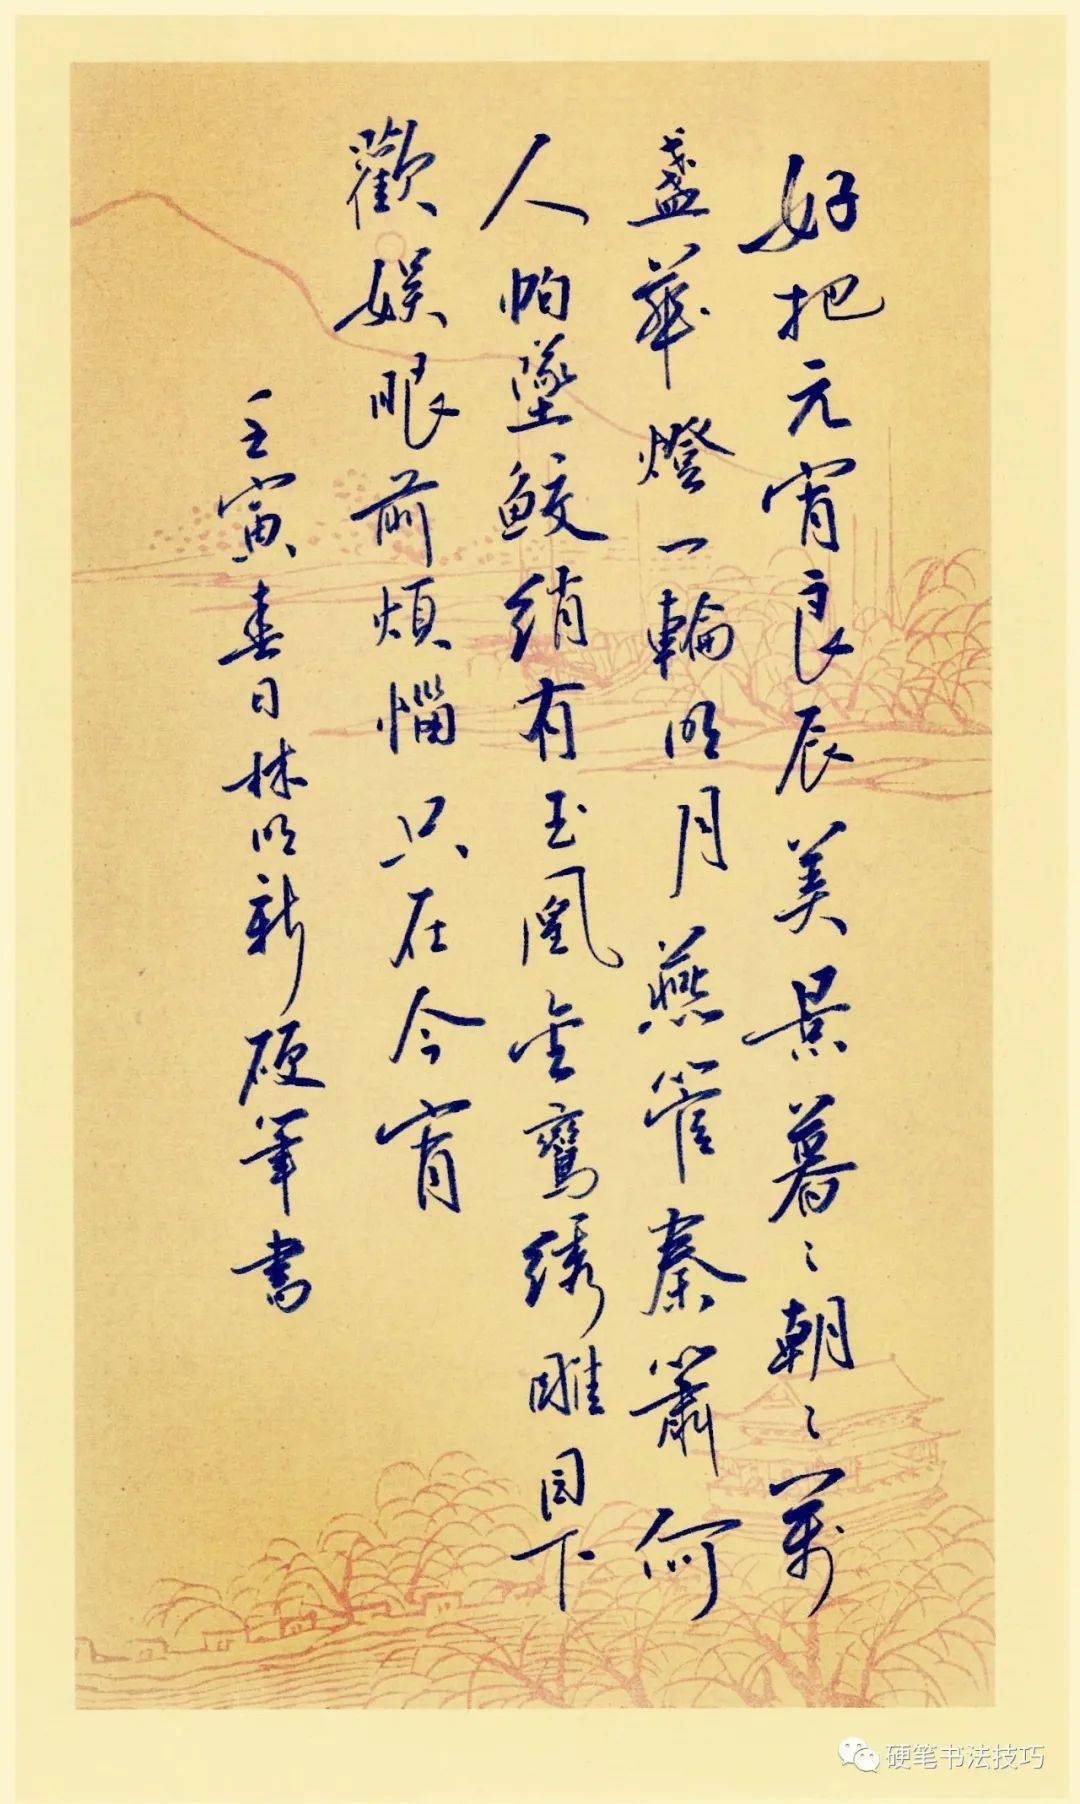 好把元宵良辰美景暮〻朝〻萬
盞華燈一輪明月燕管秦簫何
人帕墜鮫綃有玉凰金鸞繡雕目下
歡娛眼前煩惱只在今宵
壬寅春日林明新硬筆書
硬笔书法技巧